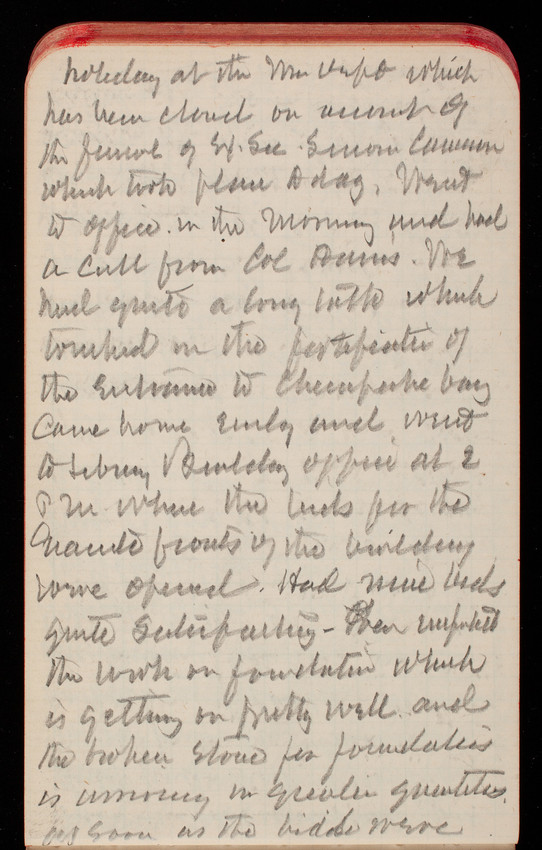 holiday at the War Dept which
has been closed on account of
the funeral of Ex. Sec. Simon Cameron
which took place today, Went
to office in the morning and had
a call from Col Adams. We
had quite a long talk which
touched on the fortification of
the Entrance to Chesapeake bay
Came home early and went
to Library Building office at 2
P M where the bids for the
Granite fronts of the building
were opened. Had nine bids
quite satisfactory - Then inspected
the work on foundation which
is getting on pretty well and
the broken stone for foundations
is arriving in greater quantities.
as soon as the bids were